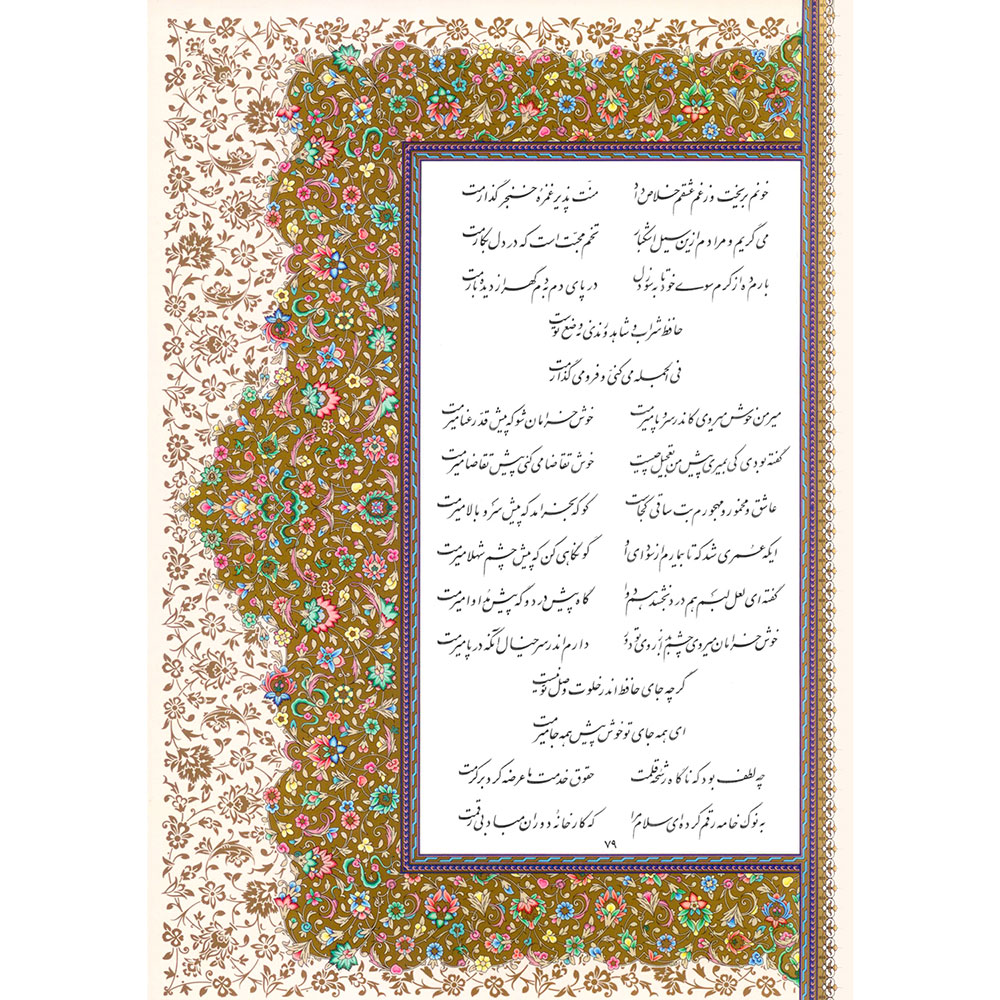 خونم بریخت و ز غم عشقم خلاص داد منّت پذیر غمزهٔ خنجر گذارمت
می گریم و مرادم ازین سیل اشکبار تخم محبّت است که در دل بکارمت
بارم ده از کرم سوی خود تا به سوز دل در پای دم بدم گهر از دیده بارمت
حافظ شراب و شاهد و رندی نه وضع توست
فی الجمله می کنی و فرو می گذارمت
میر من خوش میروی کاندر سر و پا میرمت خوش خرامان شو که پیش قد رعنا میرمت
گفته بودی کی بمیری پیش من تعجیل چیست خوش تقاضا می کنی پیش تقاضا میرمت
عاشق و مخمور و مهجورم بت ساقی کجاست گو که بخرامد که پیش سرو بالا میرمت
ایکه عمری شد که تا بیمارم از سودای او گو نگاهی کن که پیش چشم شهلا میرمت
گفته ای لعل لبم هم درد بخشد هم دوا گاه پیش درد و گه پیش مداوا میرمت
خوش خرامان میروی چشم بد از روی تو دور دارم اندر سر خیال آنکه در پا میرمت
گر چه جای حافظ اندر خلوت وصل تو نیست
ای همه جای تو خوش پیش همه جا میرمت
چه لطف بود که ناگاه رشحهٔ قلمت حقوق خدمت ما عرضه کرد بر کرمت
به نوک خامه رقم کرده ای سلام مرا که کارخانهٔ دوران مباد بی رقمت
۷۹